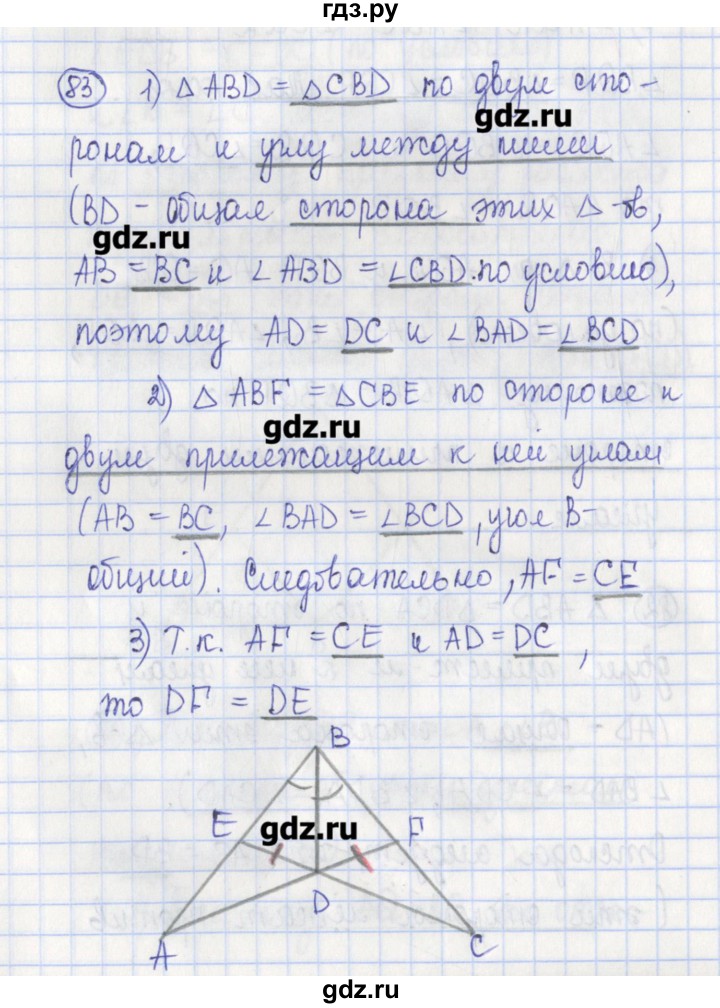 гдз.ру
83 1) △ ABD = △CBD по двум сто-
gdz.ru
ронам и углу между ними
(BD - общая сторона этих △-ов,
gdz.ru
AB = BC и ∠ ABD = ∠CBD по условию),
поэтому AD = DC и ∠BAD = ∠BCD
2) △ ABF = △CBE по стороне и
gdz.ru
двум прилежащим к ней углам
(AB = BC, ∠BAD = ∠BCD, угол B-
общий). Следовательно, AF = CE
3) Т.к. AF = CE и AD = DC,
то DF = DE
B
E
gdz.ru
F
D
A
C